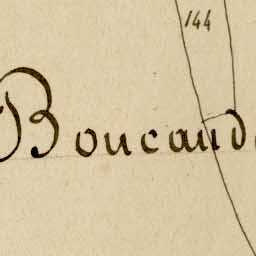 144
Boucaud